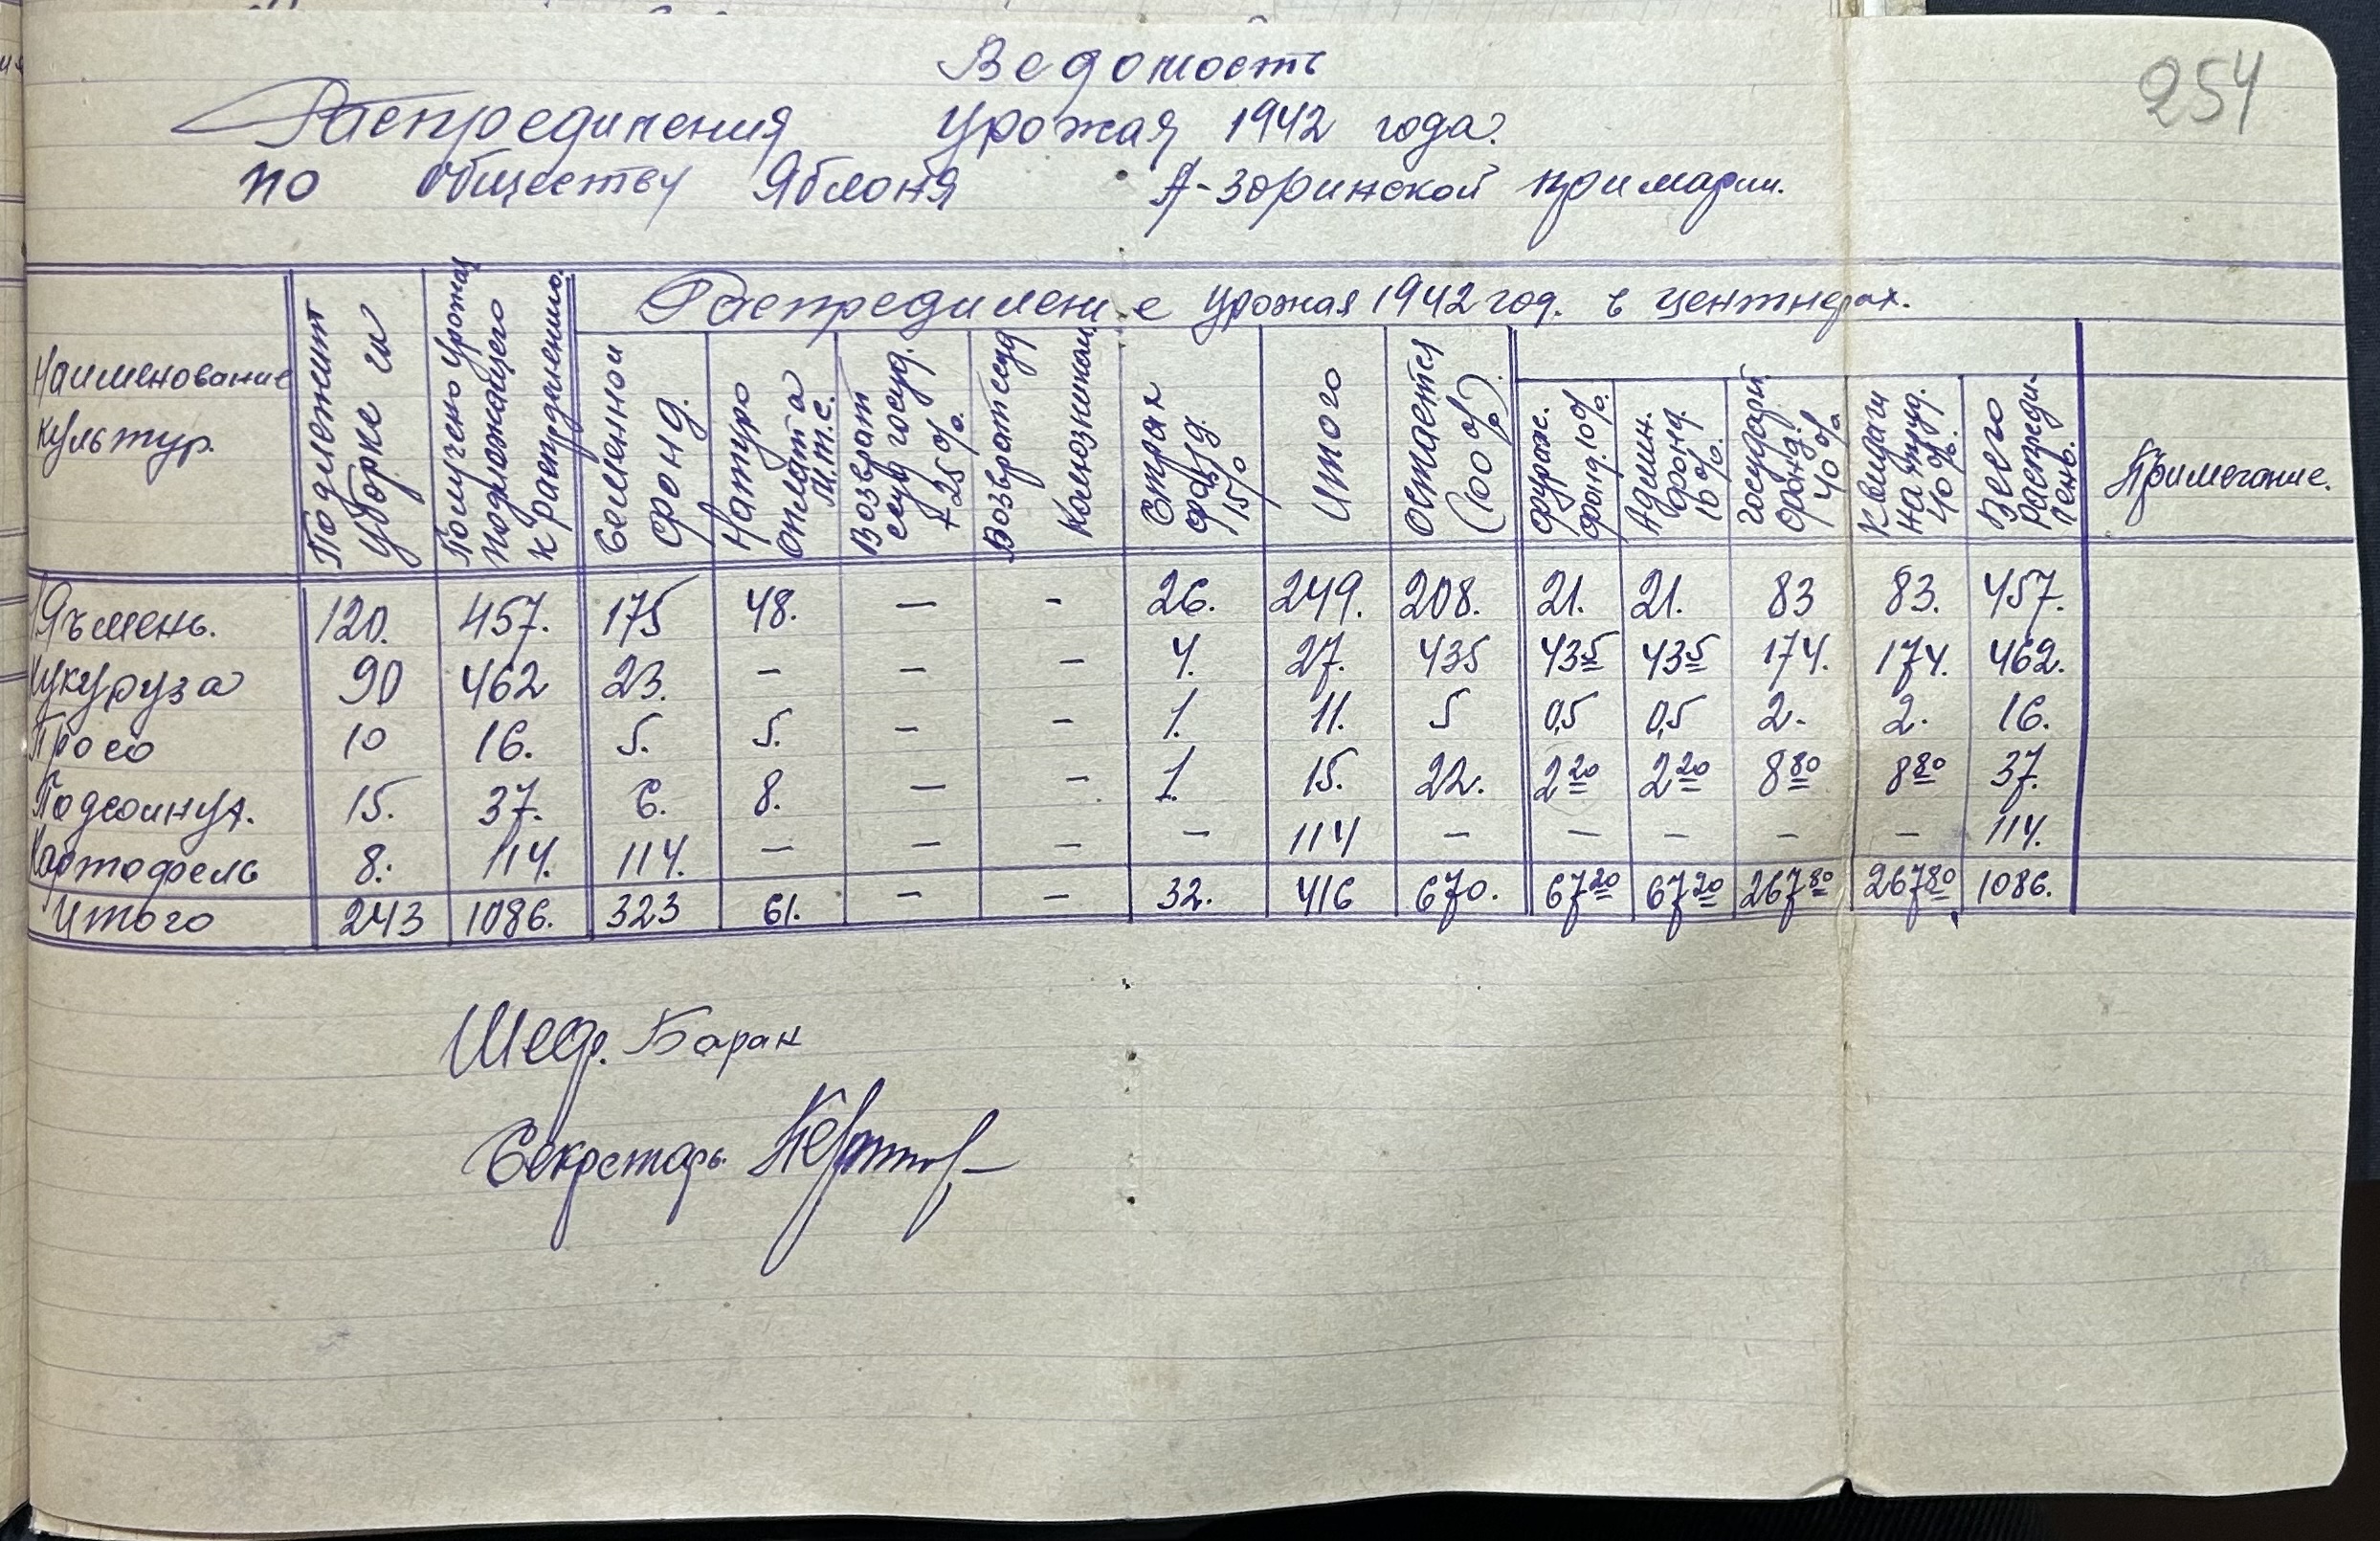 254
Ведомость
Распредиления урожая 1942 года.
по обществу Яблоня А-зоринской примарии.
Наименование культур.
Подлежит уборке га
Получено урожая подлежащего к распределению.
Распредиление урожая 1942 год. в центнерах.
Семенной фонд.
Натуро оплата М.т.с.
Возврат ссуд госуд. + 25%.
Возврат ссуд Колхозникам
Страх фонд. 15%
Итого
Остается (100%).
Фураж. фонд. 10%.
Админ. фонд. 10%.
Государ. фонд. 40%
К выдачи на труд. 40%.
Всего распреди- лено.
Примечание.
Яъмень. 120. 457. 175 48. — - 26. 249. 208. 21. 21. 83 83. 457.
Кукуруза 90 462 23. — — — 4. 27. 435 43 5 43 5 174. 174. 462.
Просо 10 16. 5. 5. — — 1. 11. 5 0,5 0,5 2. 2. 16.
Подсолнух. 15. 37. 6. 8. — — 1. 15. 22. 2 20 2 20 8 80 8 80 37.
Картофель 8. 114. 114. — — — — 114 — — — — — 114.
Итого 243 1086. 323 61. — — 32. 416 670. 67 20 67 20 267 80 267 80 1086.
Шеф. Баран
Секретарь